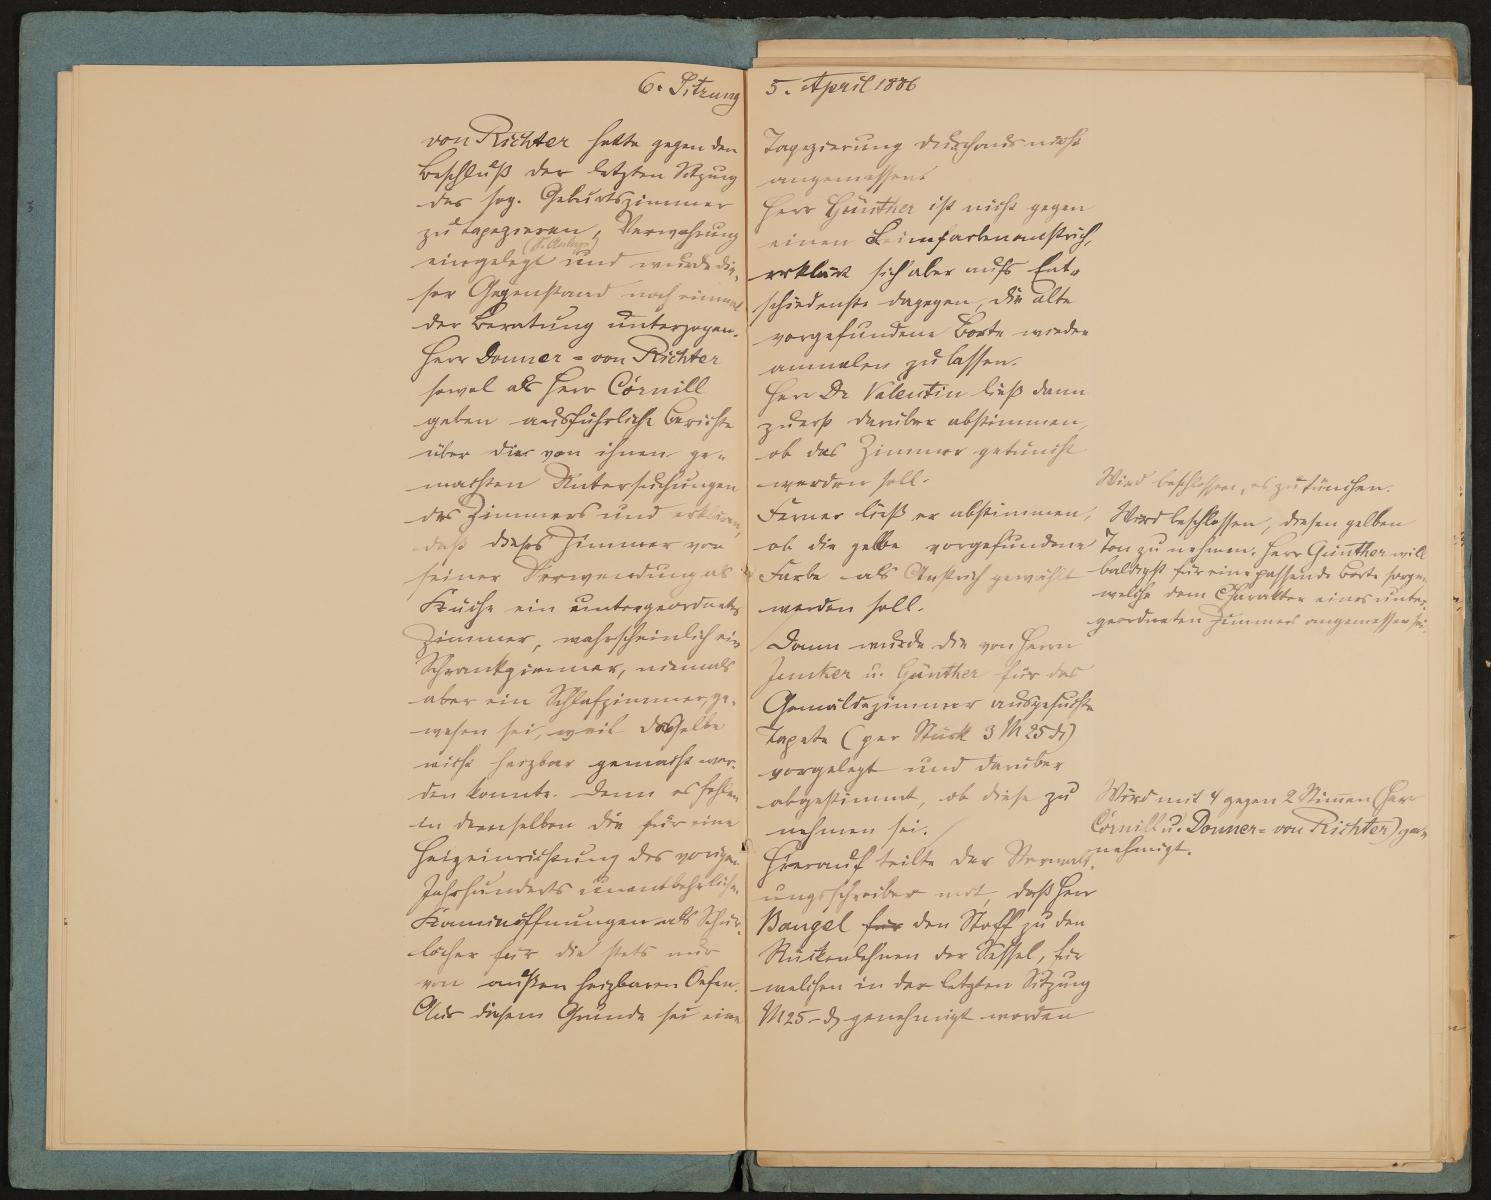 6. Sitzung
von Richter hatte gegen den
Beschluß der letzten Sitzung
das sog. Geburtszimmer
zu tapezieren, Verwahrung
(s. Anlage)
eingelegt und wurde die-
ser Gegenstand noch einmal
der Beratung unterzogen.
Herr Donner=von Richter
sowol als Herr Cornill
geben ausführliche Berichte
über die von ihnen ge-
machten Untersuchungen
des Zimmers und erklären,
daß dieses Zimmer vor
seiner Verwendung als
Küche ein untergeordnetes
Zimmer, wahrscheinlich ein
Schrankzimmer, niemals
aber ein Schlafzimmer, ge-
wesen sei, weil dasselbe
nicht heizbar gemacht wer-
den konnte. Denn es fehlen
in demselben die für eine
Heizeinrichtung des vorigen
Jahrhunderts unentbehrlichen
Kaminöffnungen als Schür-
löcher für die stets nur
von außen heizbaren Oefen.
Aus diesem Grunde sei eine
5. April 1886
Tapezierung durchaus nicht
angemessen.
Herr Günther ist nicht gegen
einen Leimfarbenanstrich,
erklärt sich aber aufs Ent-
schiedenste dagegen, die alte
vorgefundene Borte wieder
anmalen zu lassen.
Herr Dr Valentin ließ dann
zuerst darüber abstimmen,
ob das Zimmer getüncht
werden soll.
Wird beschlossen, es zu tünchen.
Ferner ließ er abstimmen,
ob die gelbe vorgefundene
Farbe als Anstrich gewählt
werden soll.
Wird beschlossen, diesen gelben
Ton zu nehmen. Herr Günther will
baldigst für eine passende Borte sorgen
welche dem Charakter eines unter-
geordneten Zimmers angemessen sei.
Dann wurde die von Herrn
Junker u. Günther für das
Gemäldezimmer ausgesuchte
Tapete (per Stück 3 M 25 ₰)
vorgelegt und darüber
abgestimmt, ob diese zu
nehmen sei.
Wird mit 4 gegen 2 Stimmen (Herr
Cornill u. Donner=von Richter) ge-
nehmigt.
Hierauf teilte der Verwalt-
ungsschreiber mit, daß Herr
Bangel für den Stoff zu den
Rückenlehnen der Sessel, für
welchen in der letzten Sitzung
M 25 – ₰ genehmigt worden